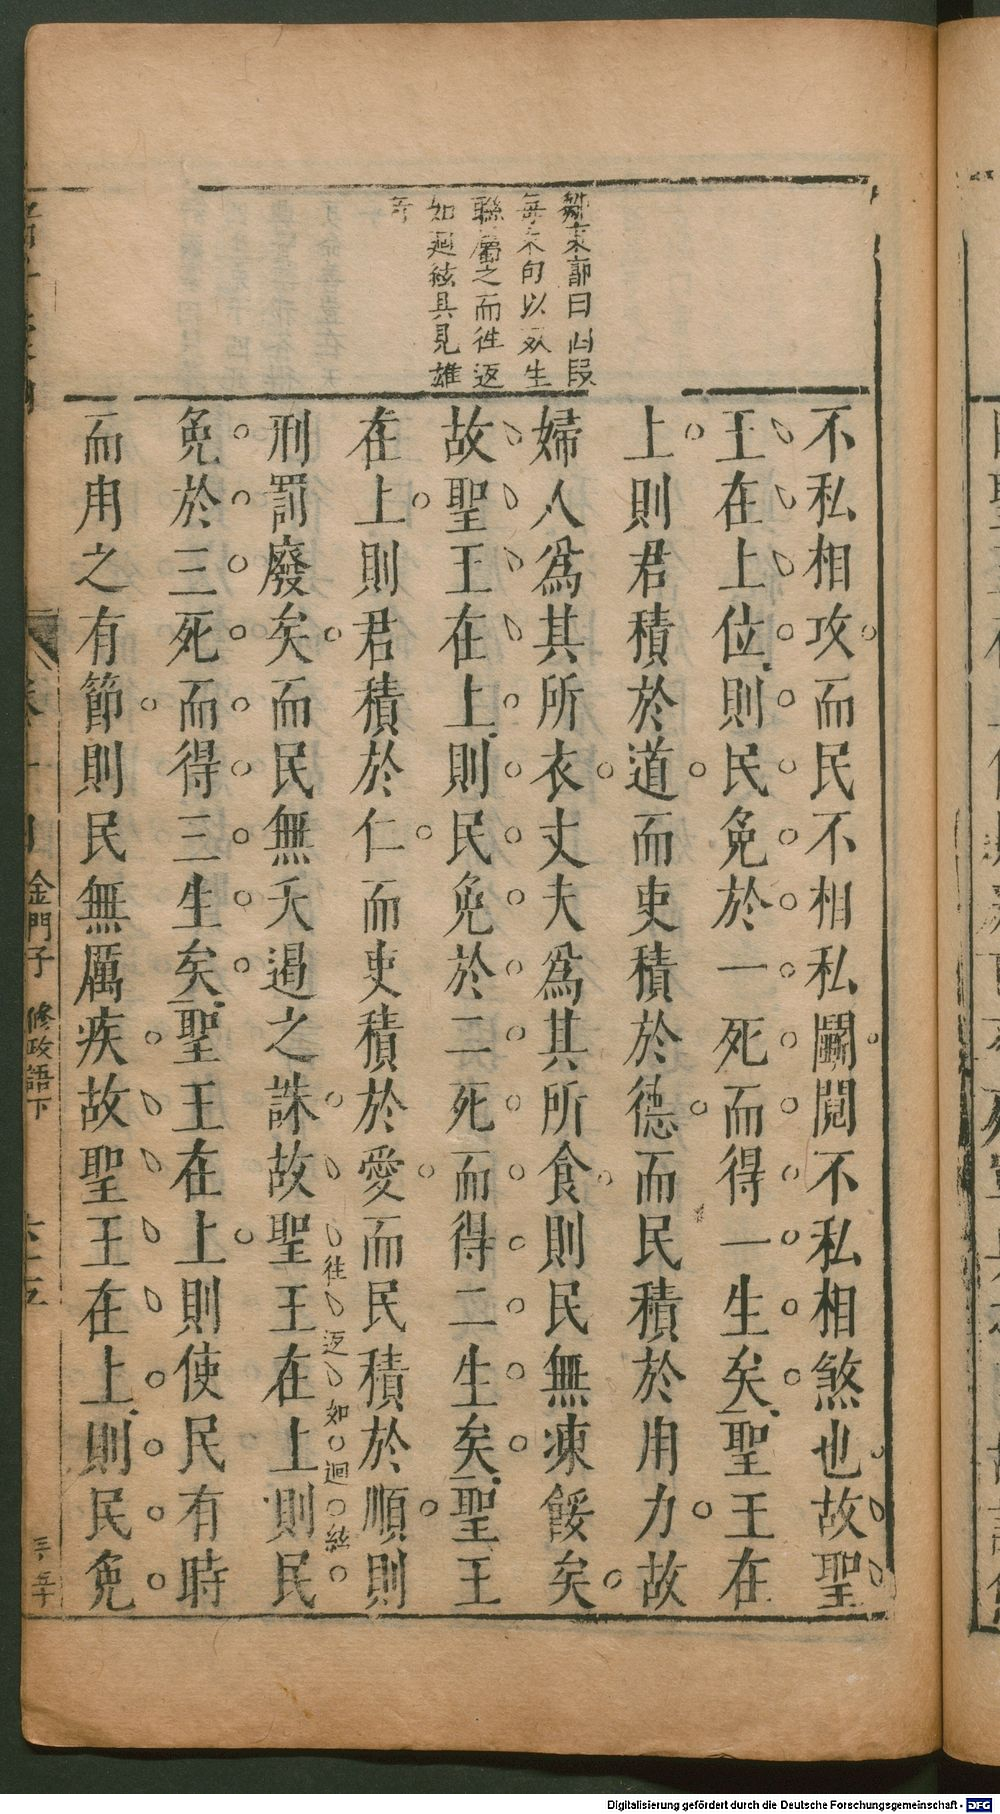 鄒東郭曰此段
每末句以死生
聯屬之而徃返
如迴絃具見雄
奇
不私相攻而民不相私鬭鬩不私相煞也故聖
王在上位則民免於一死而得一生矣聖王在
上則君積於道而吏積於德而民積於用力故
婦人為其所衣丈夫為其所食則民無凍餒矣
故聖王在上則民免於二死而得二生矣聖王
在上則君積於仁而吏積於愛而民積於順則
刑罰廢矣而民無夭遏之誅故聖王在上則民
往返如迴絃
免於三死而得三生矣聖王在上則使民有時
而用之有節則民無厲疾故聖王在上則民免
金門子 修政語下
Digitalisierung gefördert durch die Deutsche Forschungsgemeinschaft - DFG